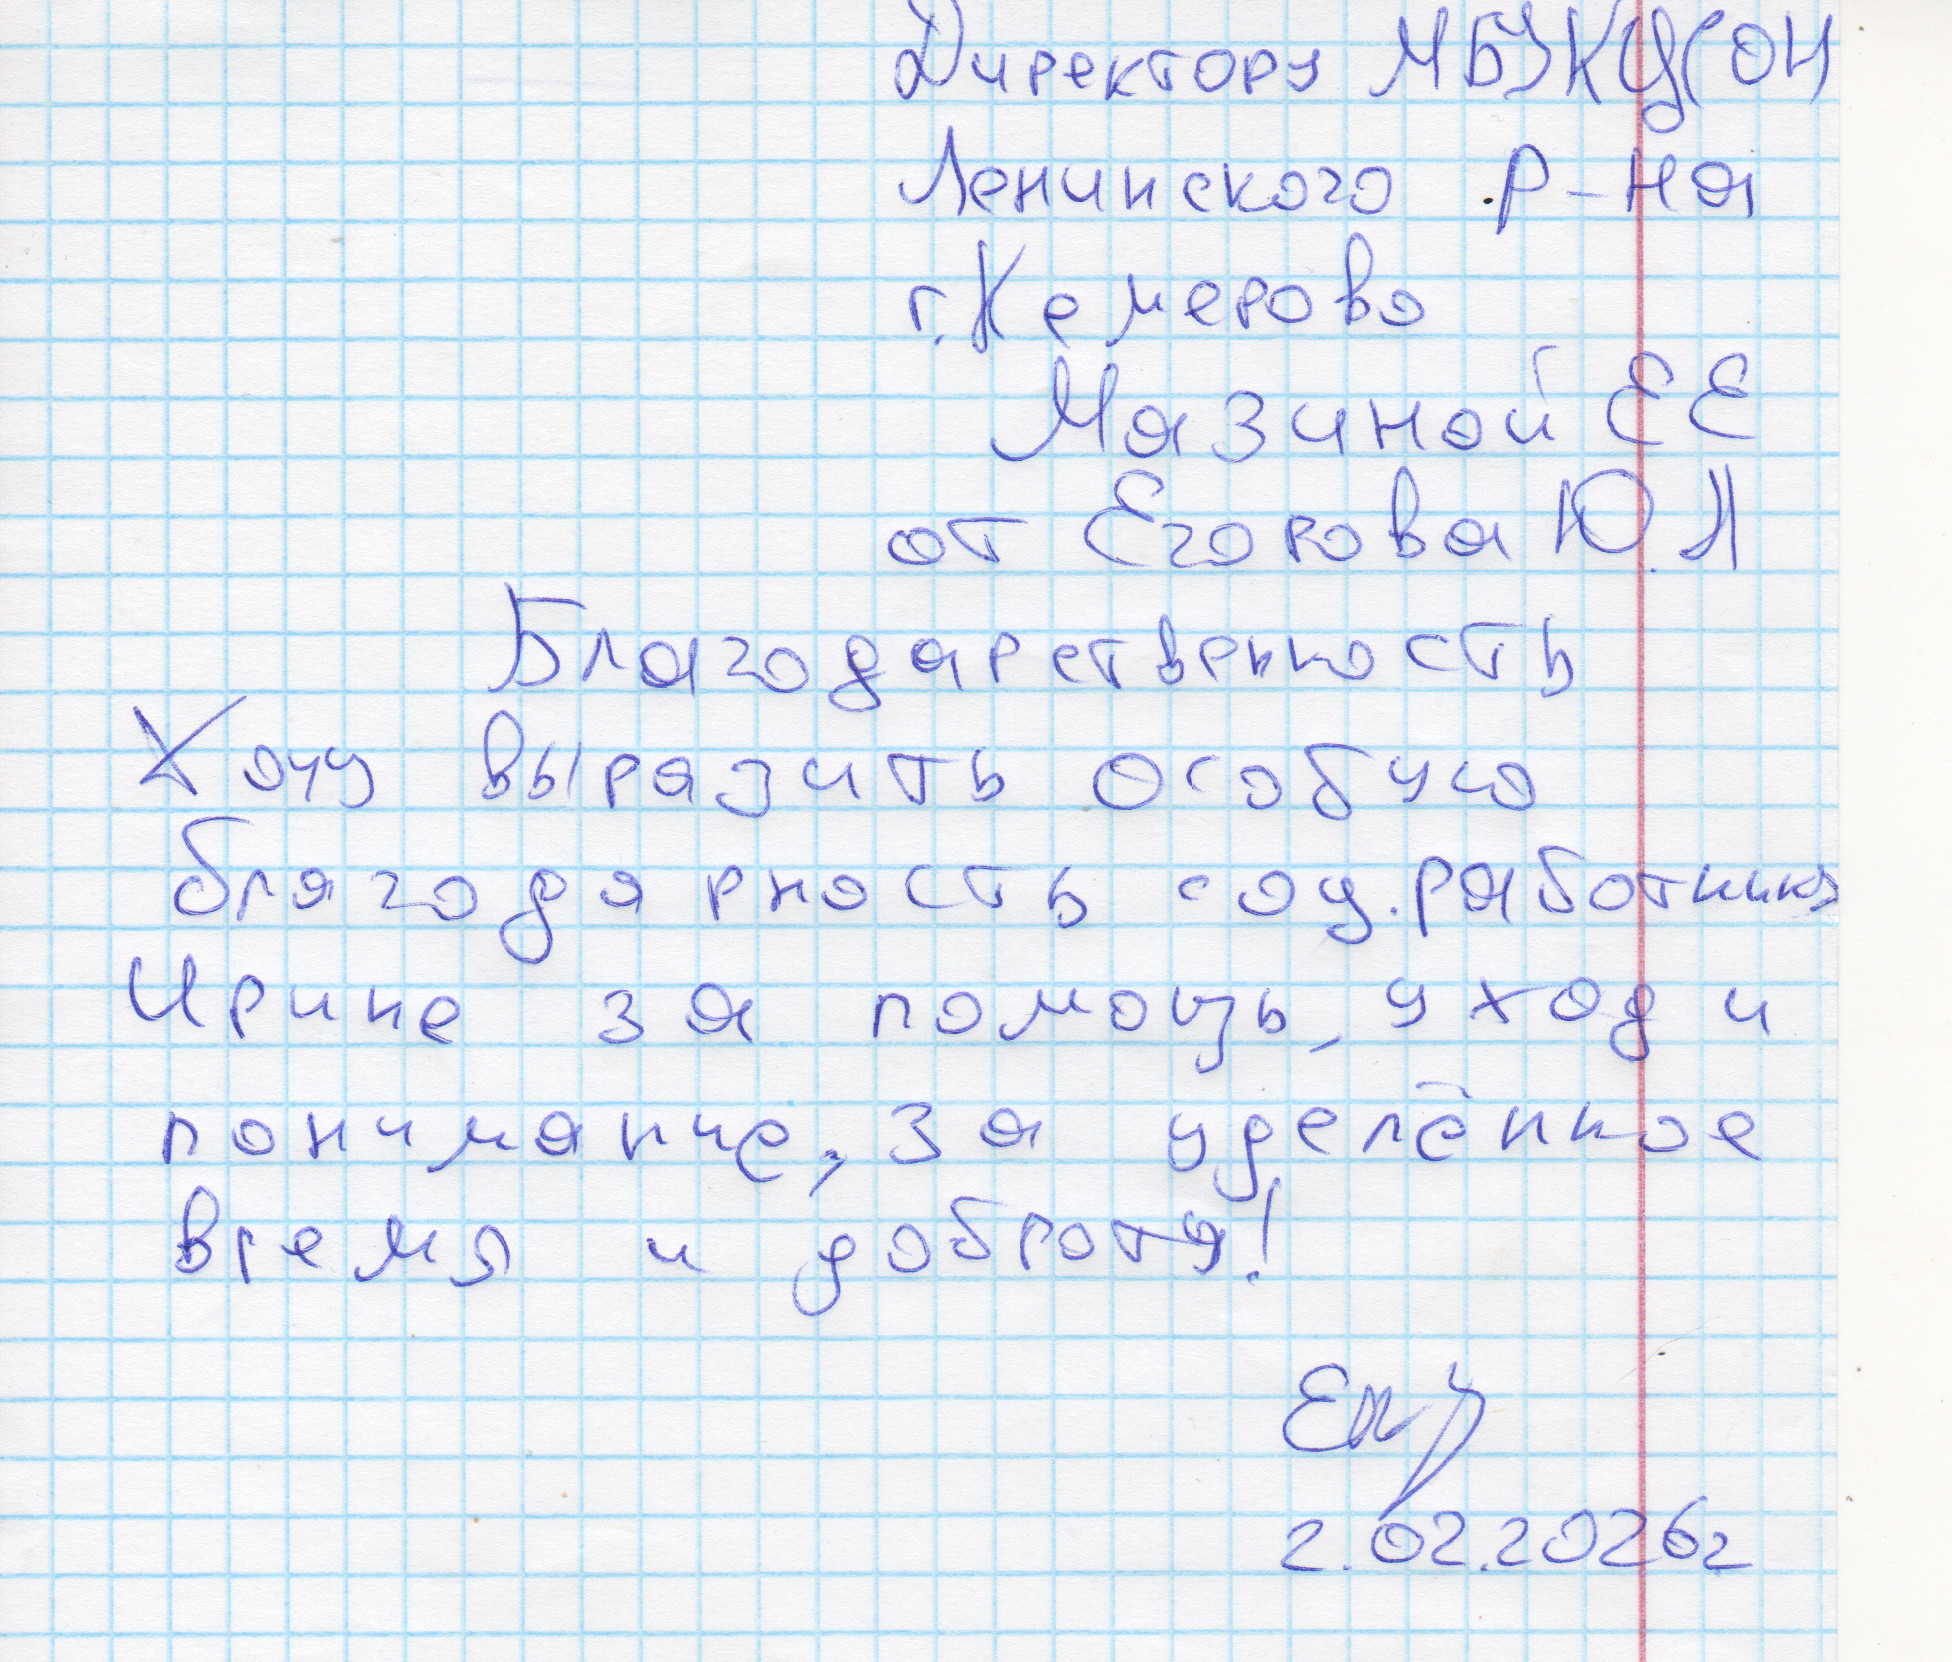 Директору МБУКЦСОН
Ленинского р-на
г.Кемерово
Мазиной ЕЕ
от Егорова Ю.А
Благодарственность
Хочу выразить особую
благодарность соц.работнику
Ирине за помощь, уход и
понимание, за уделённое
время и доброту!
2.02.2026г